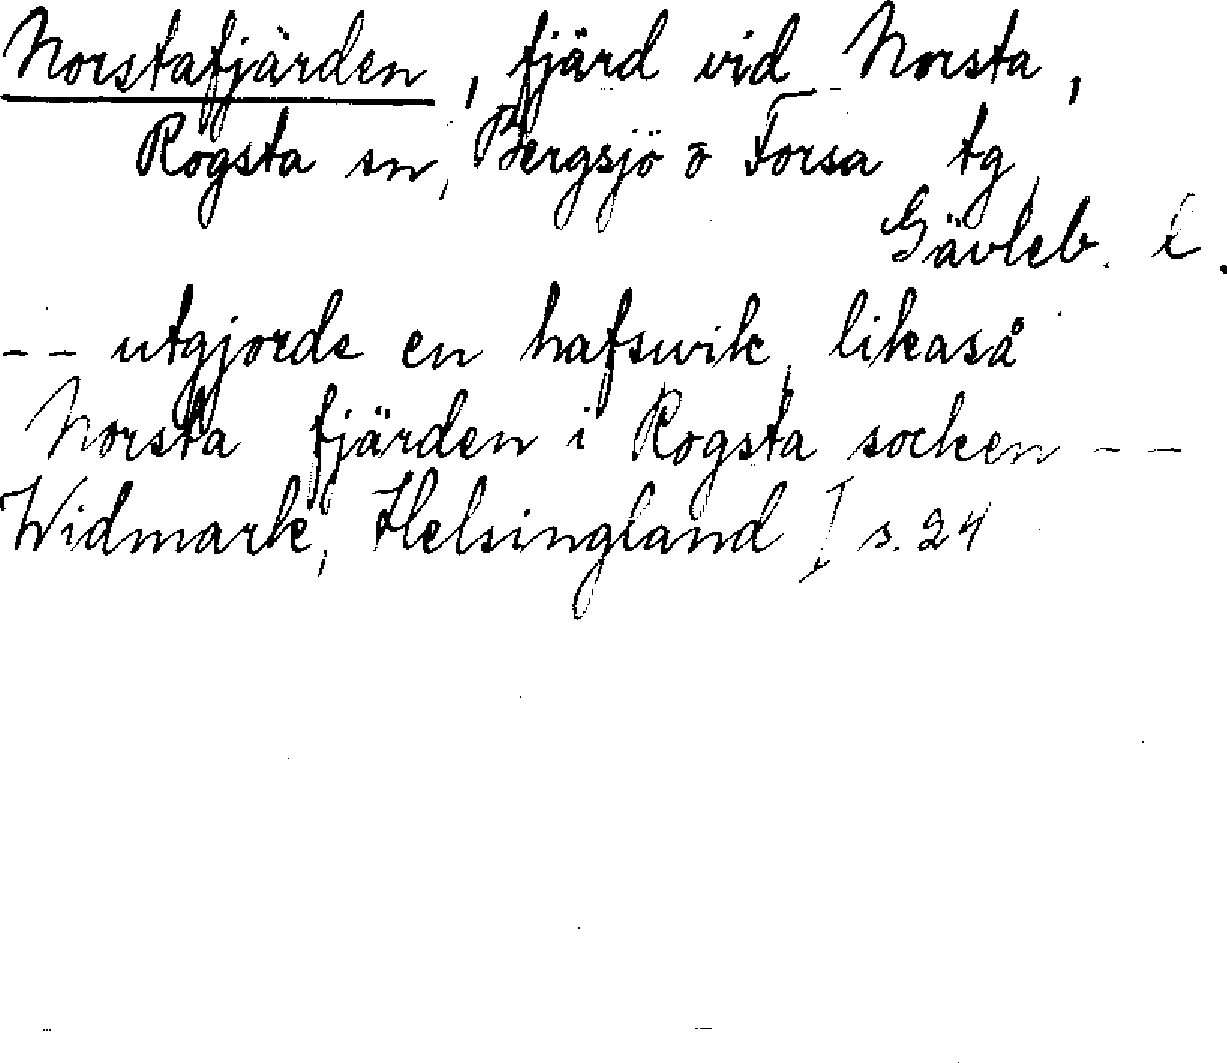 Norstafjärden, fjärd vid Norsta,
Rogsta sn, Bergsjö o Forsa tg,
Gävleb. l.
-- utgjorde en hafswik, likaså
Norsta fjärden i Rogsta socken --
Widmark, Helsingland I s. 24